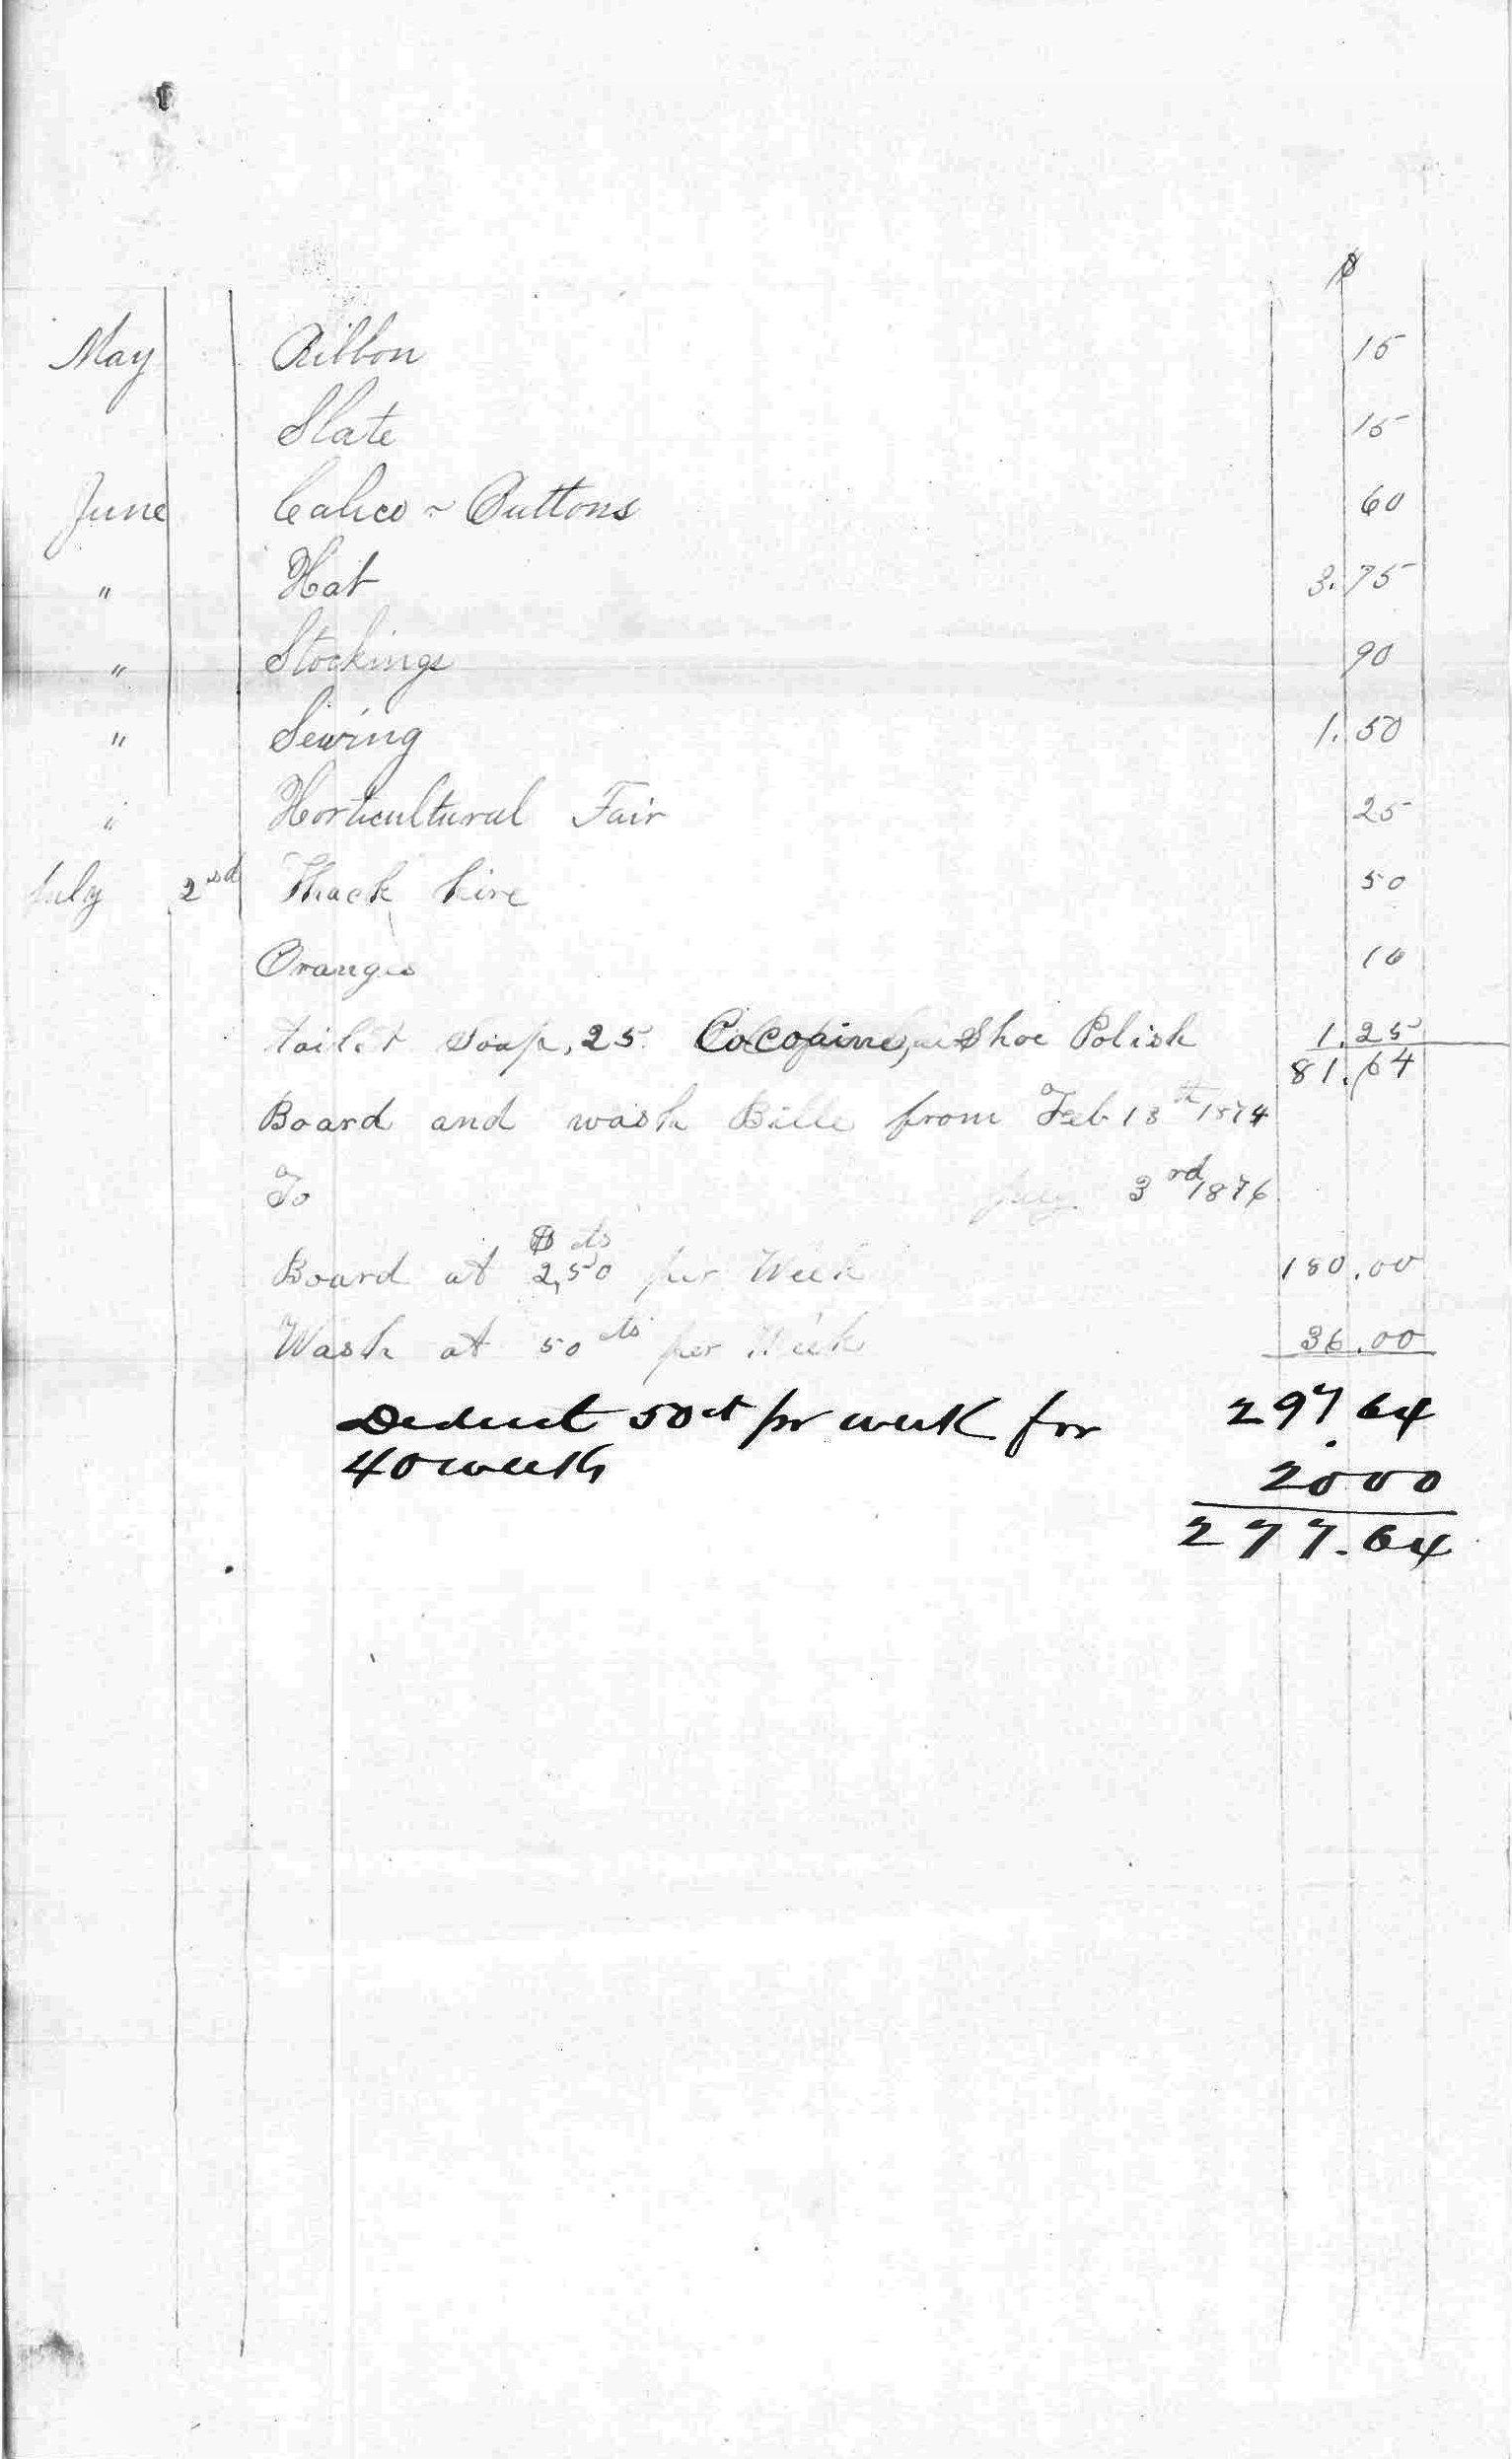 $
May Ribbon 15
Slate 15
June Calico ~ Buttons 60
" Hat 3.75
" Stockings 90
" Sewing 1.50
" Horticultural Fair 25
July 2nd Hack hire 50
Oranges 10
toilet Soap, 25 Cocoaine, Shoe Polish 1.25
81.64
Board and wash Bille from Feb 18th 1874
To July 3rd 1876
$ cts
Board at 2,50 per Week 180.00
Wash at 50 cts per Week 36.00
Deduct 50 ct pr week for 297.64
40 weeks 2000
277.64